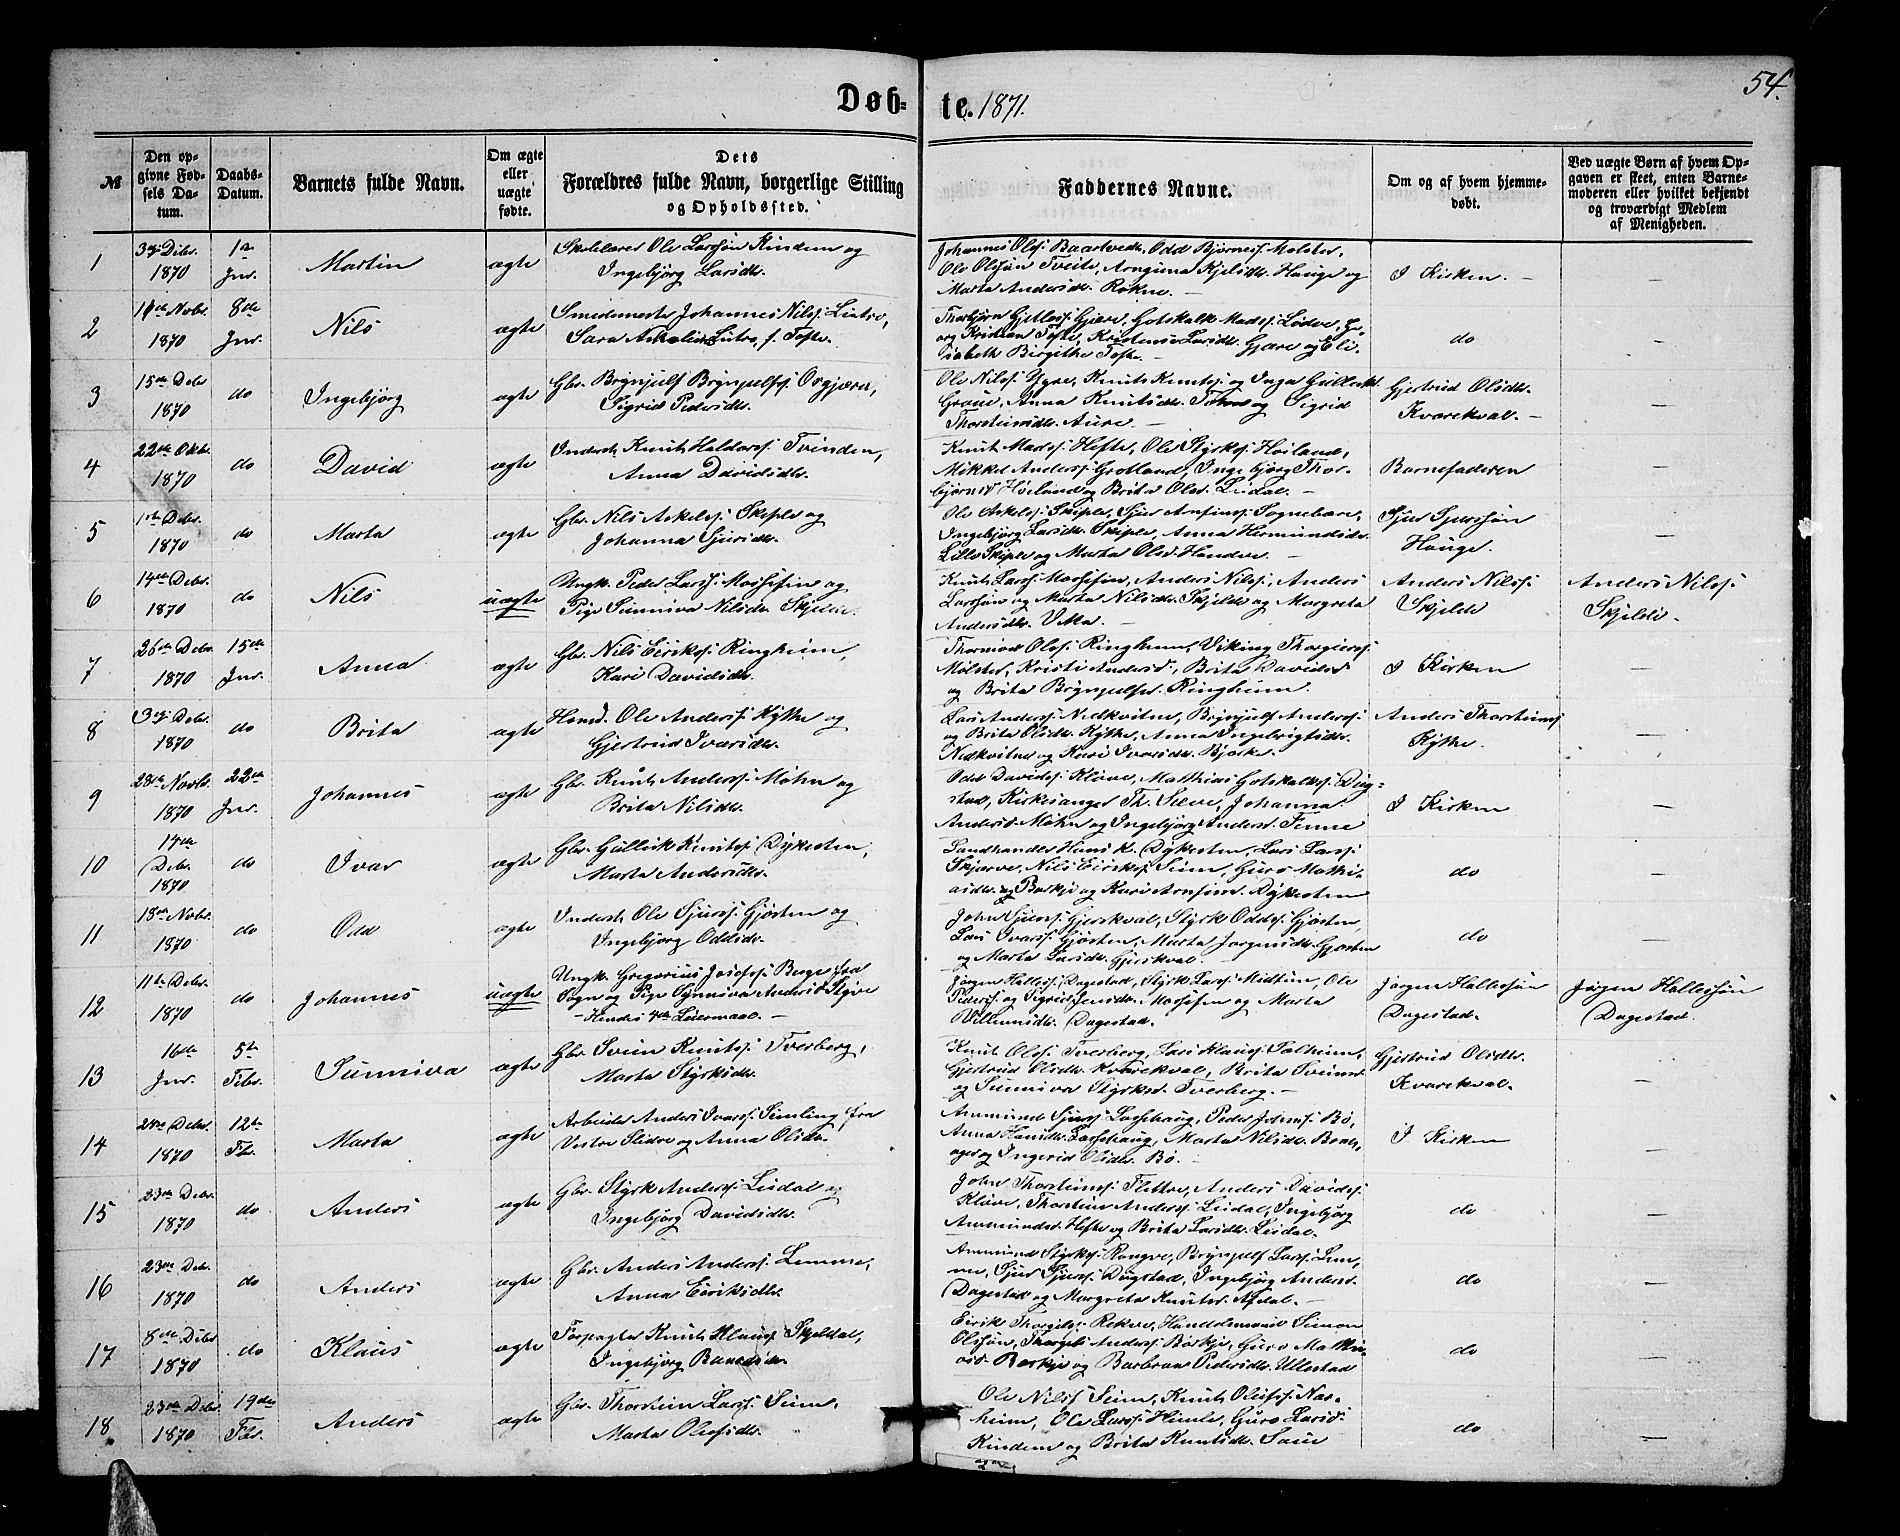 54.
Døb-te. 1871.
№
Den opgivne Fødsels Datum.
Daabs-Datum.
Barnets fulde Navn.
Om ægte eller uægte fødte.
Dets Forældres fulde Navn, borgerlige Stilling og Opholdssted.
Faddernes Navne.
Om og af hvem hjemmedøbt.
Ved uægte Børn af hvem Opgaven er skeet, enten Barnemoderen eller hvilket bekjendt og troværdigt Medlem af Menigheden.
1
3die Debr. 1870
1ste Jnr.
Martin
ægte
Skolelærer Ole Larssøn Kindem og
Ingebjørg Larsdtr.
Johannes Olss. Baartvedt, Odd Bjørness. Molster,
Ole Olssøn Tveite, Arngunna Kjelsdtr. Hauge og
Marta Andersdtr. Rokne. —
I Kirken. —
—
2
Nobr. 1870
8de Jnr.
Nils
ægte
Smedemester Johannes Nilss. Lutro,
Sara Lutro, f. Tofte.
Thorbjørn Gjære, Gotskalk Madss. Lødve,
Kristian Tofte, Larsdtr. Gjære og Eli-
sabeth Birgithe Tofte. —
do
—
3
15de Debr 1870
do
Ingebjørg
ægte
Gbr. Brynjulf Brynjulfss.
Sigrid Pedersdtr.
Ole Nilss. Ygre, Knut Knutss. og Inga
Anna Knutsdtr. og Sigrid
Thorsteinsdtr. Aure. —
Gjertrud Olsdtr.
Kvarekval. —
—
4
22de Oktbr. 1870
do
David
ægte
Inderst Knut Haldorss. Tvinden,
Anna Davidsdtr.
Knut Madss. Hefte, Ole Styrkss. Høiland,
Mikkel Anderss. Grotland, Ingebjørg Thor-
bjørnsd Høiland og Brita Olsd. Lidal. —
Barnefaderen
—
5
1ste Debr. 1870
do
Marta
ægte
Gbr. Nils Askelss. Skiple og
Johanna Sjursdtr.
Ole Askelss. Skiple, Sjur Arnfinss. Sognebare,
Ingebjørg Larsdtr. Skiple, Anna Hermundsdtr.
Lille Skiple og Marta Olsd. Handere. —
Sjur Sjurssøn
Hauge.
—
6
14de Debr. 1870
do
Nils
uægte
Ungk. Peder Larss. Mossefin og
Pige Sunniva Nilsdtr. Skjelde.
Knut Larss. Mossefin, Anders Nilss., Anders
Larssøn og Marta Nilsdtr. Skjelde og Margreta
Andersdtr. —
Anders Nilss.
Skjelde
Anders Nilss.
Skjelde.
7
26de Debr. 1870
15de Jnr.
Anna
ægte
Gbr. Nils Eirikss. Ringheim,
Kari Davidsdtr.
Thormod Olss. Ringheim, Viking Thorgierss.
Molster, Kristi Andersd., Brita Davidsd
og Brita Brynjulfsd. Ringheim.
I Kirken
—
8
3die Debr. 1870
do
Brita
ægte
Ole Anderss. Kythe og
Gjertrud Ivarsdtr.
Lars Anderss. Nedkvitne, Brynjulf Anderss.
og Brita Olsdtr. Kythe, Anna Ingebrigtsdtr.
Nedkvitne og Kari Ivarsdtr. Bjørke.
Anders Thorsteinss.
Kythe.
—
9
28de Novbr. 1870
22de Jnr.
Johannes
ægte
Gbr. Knut Anderss. Møhn og
Brita Nilsdtr.
Odd Davidss. Kløve, Matthias Gotskalkss. Dag-
stad, Kirkesanger Th. Sæve, Johanna
Andersd. Møhn og Ingebjørg Andersd. Finne
I Kirken
—
10
14de Debr. 1870
do
Ivar
ægte
Gbr. Gullik Knutss. Dykesten,
Marta Andersdtr.
Landhandler K. Dykesten, Lars Larss.
Skjerve, Nils Eirikss. Seim, Guro Mathi-
asdtr. og Kari Arnfinsd. Dykesten
do
—
11
18de Nobr. 1870
do
Odd
ægte
Inderst Ole Sjurss. Gjøsten og
Ingebjørg Oddsdtr.
John Sjurss. Gjerskval, Styrk Oddss. Gjøsten,
Lars Ivarss. Gjøsten, Marta Jørgensdtr. Gjøsten
og Marta Larsdtr. Gjerskval.
do
—
12
11te Debr. 1870
do
Johannes
uægte
Ungk. Gregorius Josefss. Berge fra
Sogn og Pige Synniva Andersd. Styve
— Hendes 4de Leiermaal. —
Jørgen Halless. Dagestad, Styrk Larss. Midtun, Ole
Pederss. og Sigrid Jensdtr. Mossefin og Marta
Villumsdtr. Dagestad.
Jørgen Hallessøn
Dagestad.
Jørgen Hallessøn
Dagestad.
13
16de Jnr.
5te Febr.
Sunniva
ægte
Gbr. Svein Knutss. Tverberg,
Marta Styrksdtr.
Knut Olss. Tverberg, Lars Klauss. Sælheim,
Gjertrud Olsdtr. Kvarekval, Brita Sveinsd
og Sunniva Styrksd. Tverberg. —
Gjertrud Olsdtr.
Kvarekval.
—
14
Debr. 1870
12te Fbr.
Marta
ægte
Arbeider Anders Ivarss. Simling fra
Vestre Slidre og Anna Olsdtr.
Ammund Sjurss. Lassehaug, Peder Bø,
Anna Hansdtr. Lassehaug, Marta Nilsdtr.
og Ingerid Olsdtr. Bø. —
I Kirken
—
15
23de Debr. 1870
do
Anders
ægte
Gbr. Styrk Anderss. Lidal og
Ingebjørg Davidsdtr.
John Thorsteinss. Flettre, Anders Davidss.
Kløve, Thorstein Anderss. Lidal, Ingebjørg
Ammundsd. Hefte og Brita Larsdtr. Lidal.
do
—
16
23de Debr. 1870
do
Anders
ægte
Gbr. Anders Anderss. Lemme,
Anna Eiriksdtr.
Ammund Styrkss. Rongve, Brynjulf Larss. Lem-
me, Sjur Sjurss. Dagstad, Ingebjørg Andersd.
Dagestad og Margreta Knutsd. Afdal. —
do
—
17
8de Debr 1870
do
Klaus
ægte
Forpagter Knut Klauss. Skjeldal,
Ingebjørg
Eirik Thorgilss. Rekve, Handelsmand Simon
Olssøn, Thorgils Anderss. Borkje, Guro Mathi-
asd. Borkje og Barbraa Pedersdtr. Ullestad
do
—
18
23de Debr. 1870
19de Fbr.
Anders
ægte
Gbr. Thorstein Larss. Seim,
Marta Olafsdtr.
Ole Nilss Seim, Knut Olafss. Næs-
heim, Ole Larss. Himle, Guro Larsd.
Kindem og Brita Knutsdtr. Saue
do
—